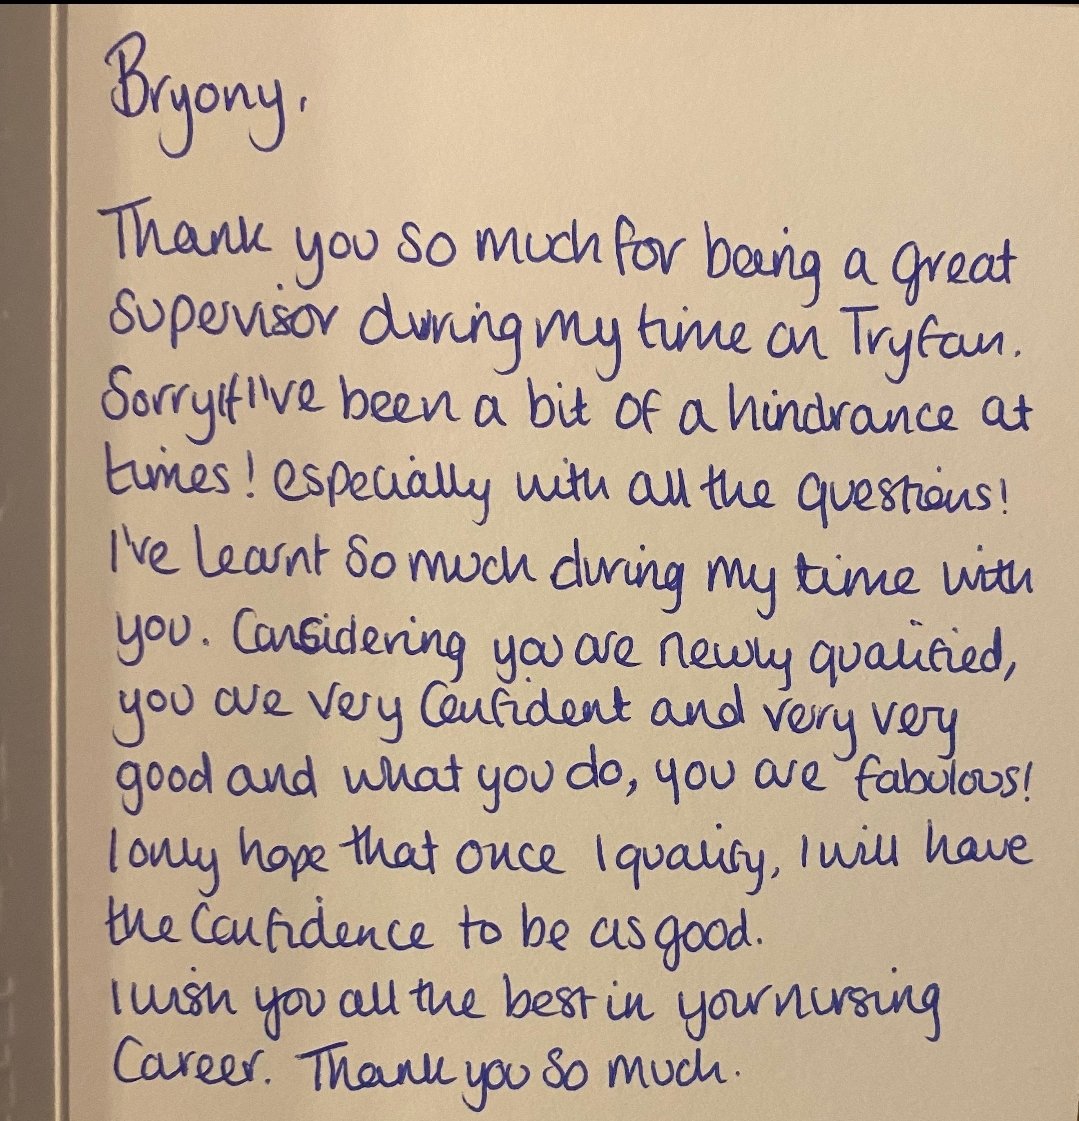 Bryony,
Thank you so much for being a great
supervisor during my time on Tryfan.
Sorry if I've been a bit of a hindrance at
times! especially with all the questions!
I've learnt so much during my time with
you. Considering you are newly qualified,
you are very confident and very very
good and what you do, you are fabulous!
I only hope that once I qualify, I will have
the confidence to be as good.
I wish you all the best in your nursing
Career. Thank you so much.